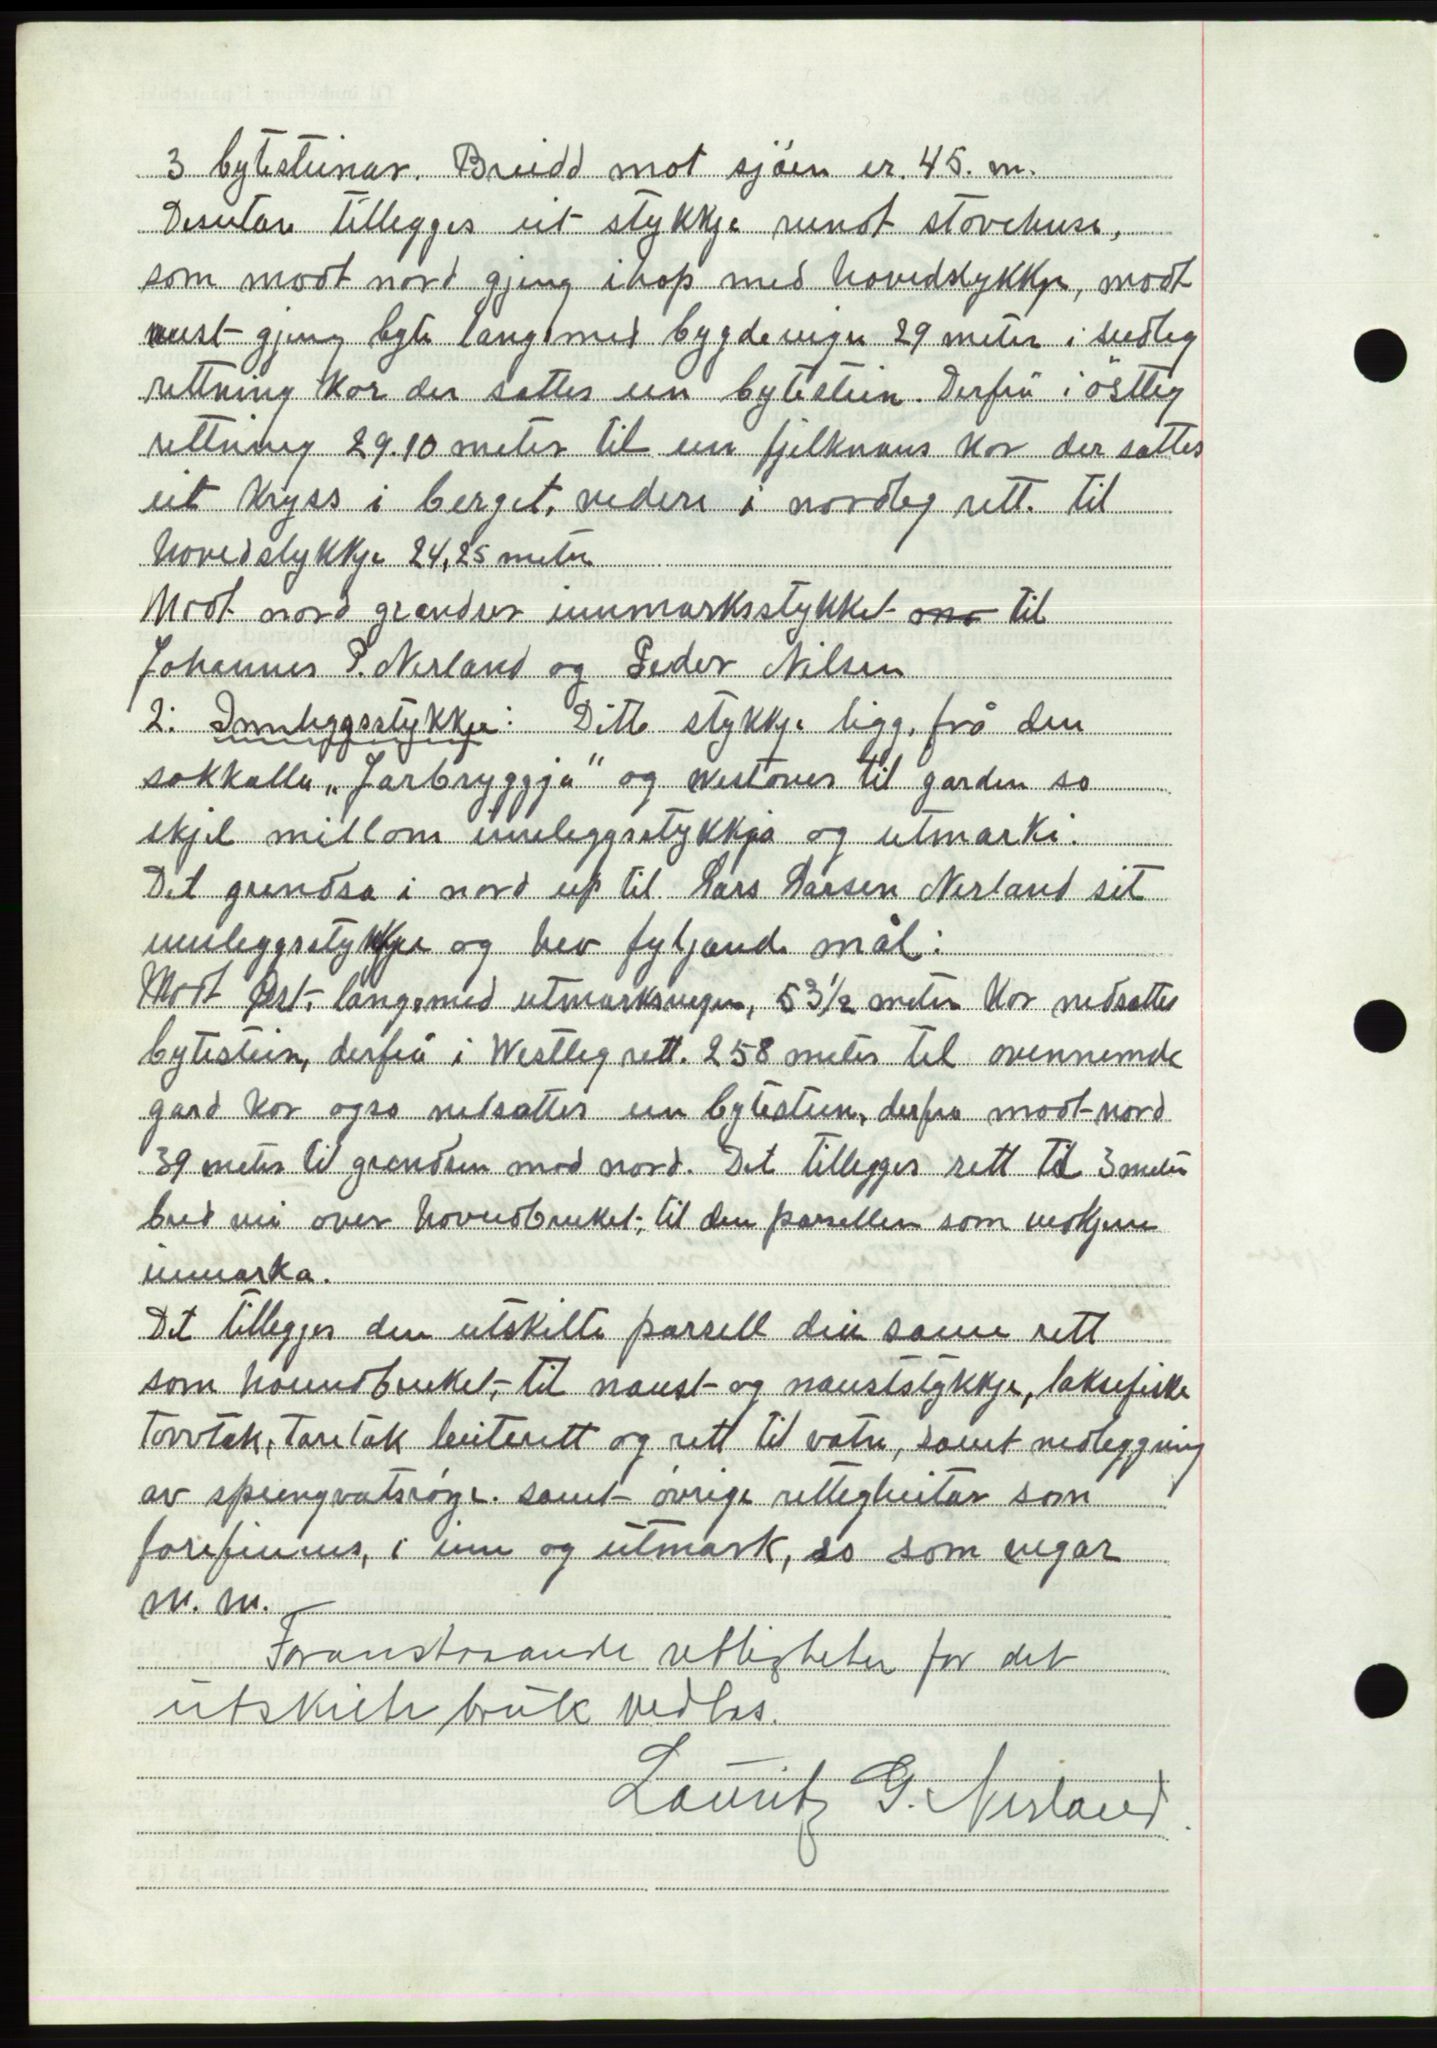 3 bytesteinar. Breidd mot sjöen er. 45. m.
Desutan tillegges eit stykkje rundt stovehuse,
som modt nord gjeng ihop med hovedstykkje, modt
vest gjeng byte langsmed bygdevegen 29 meter i sudleg
rettning kor der sattes ein bytestein. Derfrå i östleg
rettning 29.10 meter til ein fjelknaus kor der sattes
eit kryss i berget, videre i nordleg rett. til
hovedstykkje 24,25 meter
Modt nord grendser innmarksstykket til
Johannes P. Nerland og Peder Nilsen
2: Innleggsstykkje: Dette stykkje ligg, frå den
sokkalla „Jarbryggja" og vestover til garden so
skjel millom innleggsstykkja og utmarki.
Det grendsa i nord up til Lars Larsen Nerland sit
innleggsstykkje og hev fyljande mål:
Modt Øst, langsmed utmarksvegen, 53½ meter kor nedsattes
bytestein, derfrå i Westleg rett. 258 meter til ovennemde
gard kor ogso nedsattes ein bytestein, derfra modt nord
39 meter til grendsen mod nord. Det tillegges rett til 3 meter
bred vei over hovedbruket, til den parsellen som vedkjem
innmarka.
Det tillegges den utskilte parsell den same rett
som hovudbruket, til naust og nauststykkje, laksefiske
torvtak, taretak beiterett og rett til vatn, samt nedleggning
av springvatsröyr. samt övrige rettegheitar som
forefinnes, i inn og utmark, so som vegar
m. m.
Foranstaaande rettigheter for det
utskilte bruk vedtas.
Lauritz G. Nerland.